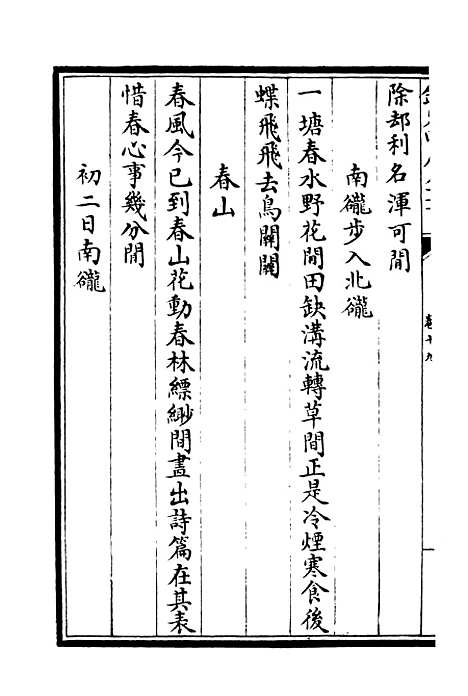 除却利名渾可閒
南巃步入北巃
一塘春水野花閒田缺溝流轉草間正是冷煙寒食後
蝶飛飛去鳥關關
春山
春風今已到春山花動春林縹緲間畫出詩篇在其表
惜春心事幾分閒
初二日南巃